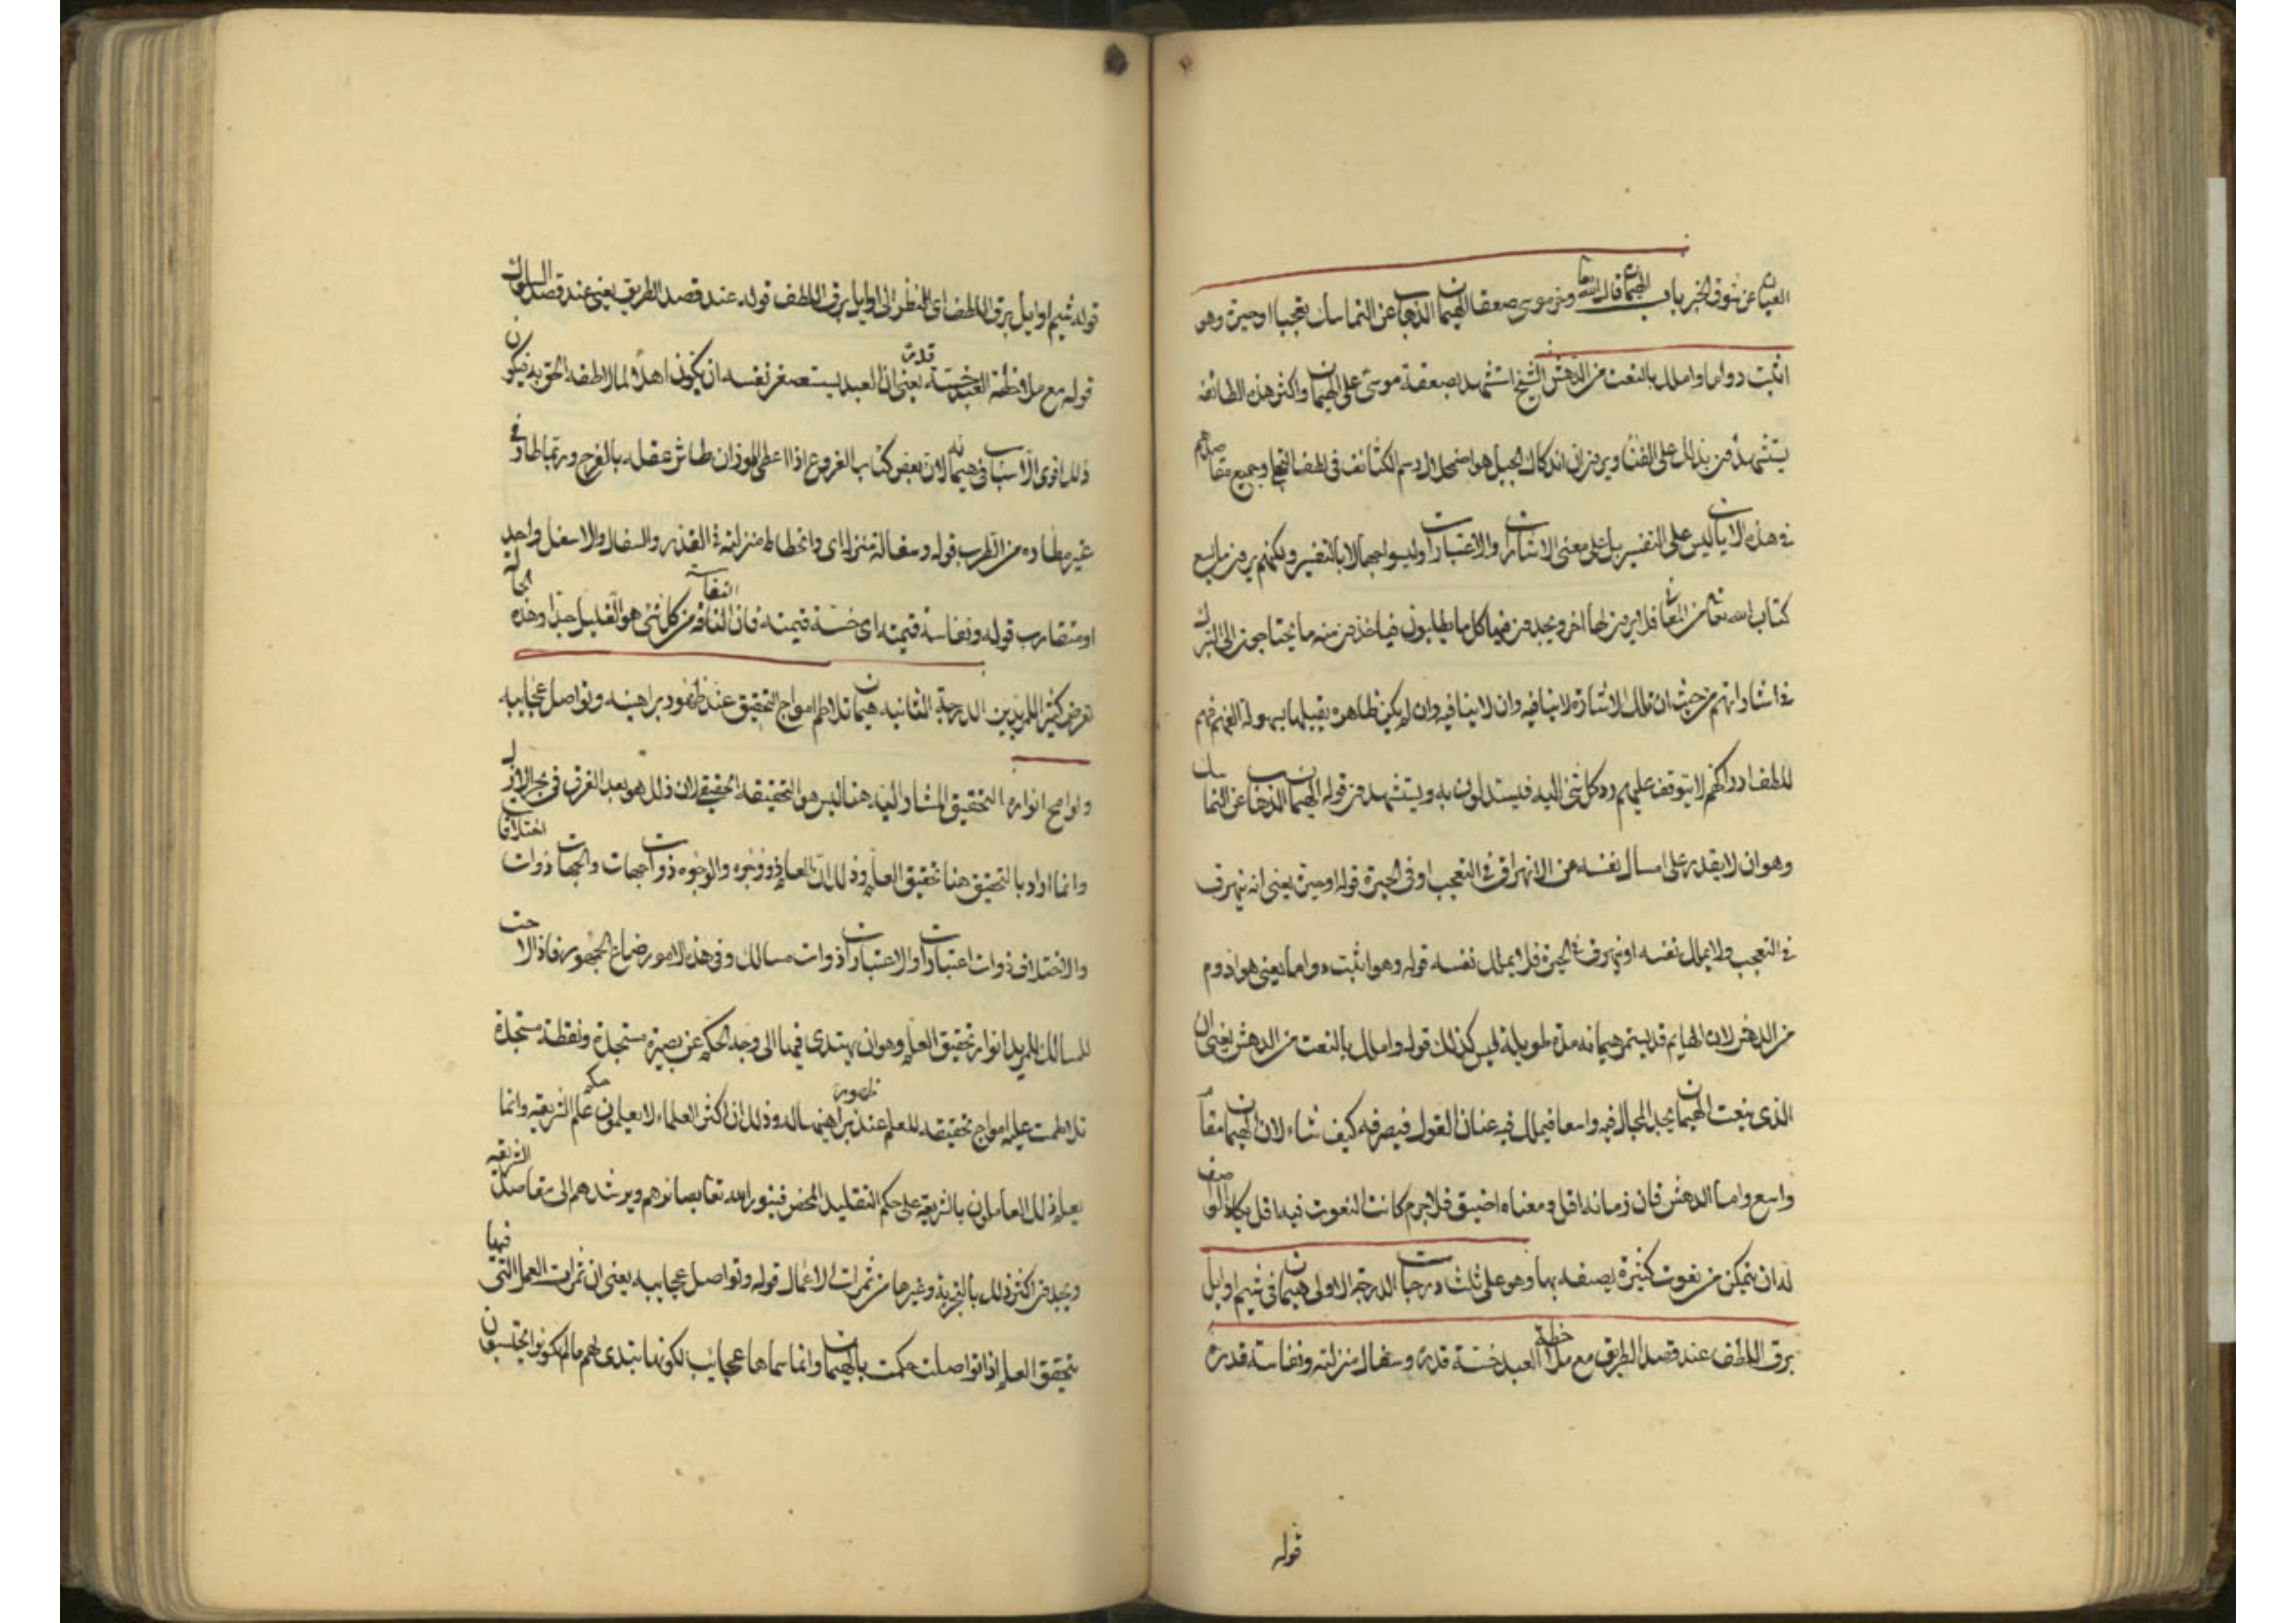 العيان عن شوق الخبر باب الهيمان قال الله تعا وخر موسى صعقا الهيمان الذهاب عن التماسك تعجبا او حيرة وهو
اثبت دواما واملك بالنعت من الدهش الشيخ استشهد بصعقة موسى على الهيمان واكثر هذه الطائفة
يستشهدون بذلك على الفناء ويرون ان اندكاك الجبل هو اضمحلال رسم الكثائف في لطف التجلي وجميع مقاصدهم
في هذه الايات ليس على التفسير بل على معنى الاشارات والاعتبارات وليسوا جهالا بالتفسير ولكنهم يرون ما يسع
كتاب الله تعا من المعاني فلا يرون لها اخر ويجدون فيها كل ما يطلبون فياخذون منه ما يحتاجون الى التبرك
في اشاراتهم من حيث ان تلك الاشارة لا تنافيه وان لا ينافيه وان لم يكن ظاهره يقبلها بسهولة الفهم فهم
للطف ادراكهم لا يتوقف عليهم رد كل شئ اليه فيستدلون به ويستشهدون قوله الهيمان الذهاب عن التماسك
وهو ان لا يقدر على امساك نفسه عن الانهراق في التعجب او في الحيرة قوله او حيرة يعنى انه ينهرق
في التعجب ولا يملك نفسه او ينهرق في الحيرة فلا يملك نفسه قوله وهو اثبت دواما يعنى هو ادوم
من الدهش لان الهايم قد يستمر هيمانه مدة طويلة وليس كذلك قوله واملك بالنعت من الدهش يعنى ان
الذى ينعت الهيمان يجد المجال فيه واسعا فيملك فيه عنان القول فيصرفه كيف شاء لان الهيمان مقام
واسع واما الدهش فان زمانه اقل ومعناه اضيق فلا جرم كانت النعوت فيه اقل يكاد الواصف
له ان يتمكن من نعوت كثيرة يصفه بها وهو على ثلث درجات الدرجة الاولى هيمان في شيم اوايل
برق اللطف عند قصد الطريق مع ملاحظة العبد خسة قدره وسفال منزلته ونفاسة قدره
قوله
قوله شيم اوايل برق اللطف اى النظر الى اوايل برق اللطف قوله عند قصد الطريق يعنى عند قصد السلوك
قوله مع ملاحظة العبد خسة قدره يعنى ان العبد يستصغر نفسه ان يكون اهلا لما لاطفه الحق به فيكون
ذلك اقوى الاسباب في هيمانه لان بعض كتاب الفروع اذا اعطى الوزان طاش عقله بالفرح وربما طاوف
غير مطاده من الطرب قوله وسفالة منزله اى وانحطاط منزلته في القدر والسفال والاسفل واحد
او متقارب قوله ونفاسة قيمته اى خسة قيمته فان التافه من كل شئ هو القليل جدا وهذه الحالة
تعرض كثير المريدين الدرجة الثانيه هيمان تلاطم امواج التحقيق عند ظهور براهينه وتواصل عجايبه
ولوامح انواره التحقيق المشار اليه هنا ليس هو التحقيقه الحقيقي لان ذلك هو بعد الغرق في بحر الازل
وانما اراد بالتحقيق هنا تحقيق العلم وذلك ان العلم ذو وجوه والوجوه ذوات جهات والجهات ذوات اختلافات
والاختلاف ذوات اعتبارات والاعتبارات ذوات مسالك وفي هذه الامور ضاع الجمهور فاذا لاحت
للسالك المريد انوار تحقيق العلم وهو ان يهتدى فيها الى وجه الحكم عن بصيرة مستجدة ويقظة مستجدة
تلاطمت عليه امواج تحقيقه للعلم عند ظهور براهينها له وذلك ان اكثر العلماء لا يعلمون حكم علم الشريعه وانما
يعلم ذلك العاملون بالشريعه على حكم التقليد المحض فينور الله تعا بصائرهم ويرشدهم الى مقاصد الشريعه
ويجدون اكثر ذلك بالتجربة وغيرها من ثمرات الاعمال قوله وتواصل عجايبه يعنى ان ثمرات العمل التى فيها
تحقيق العلم اذا تواصلت حكمت بالهيمان وانما سماها عجايب لكونها تبتدى لهم ما لم يكونوا يحتسبون